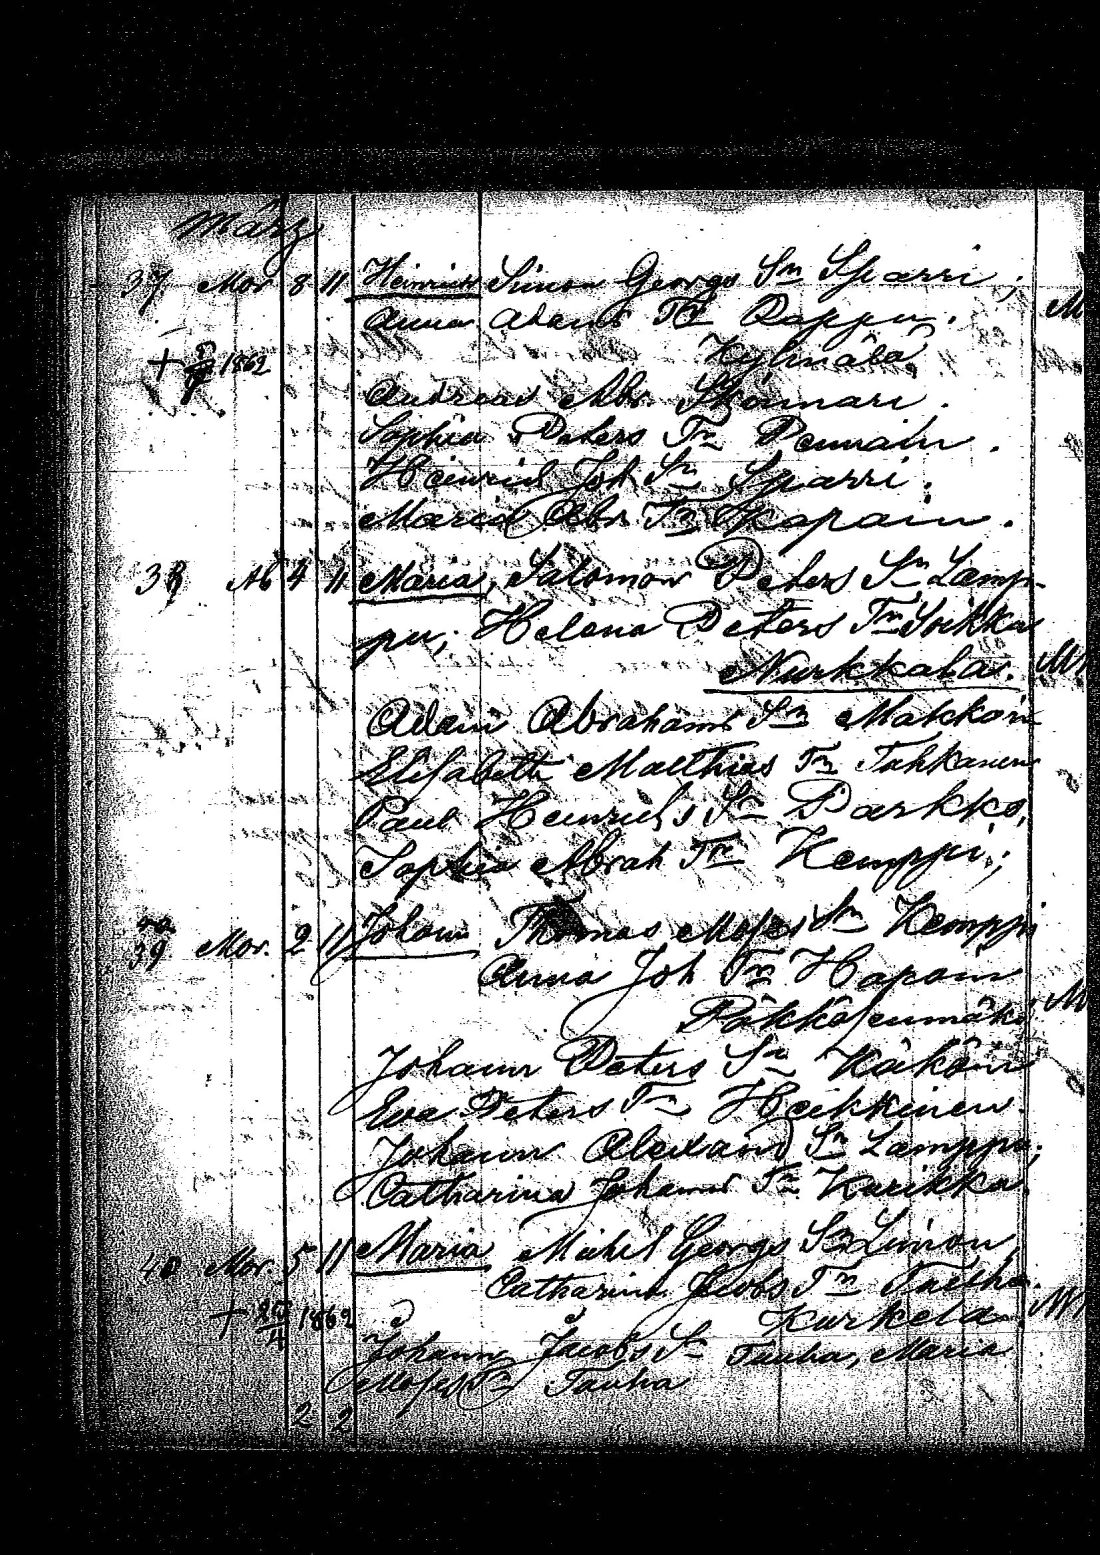 März
37 Mor 8 11 Heinrich Simon Georgs Sn Sparri;
Anna Adams Tr Pappu.
Kylmälä
+ 1862
Andreas Abr.
Sophia Peters Tr
Heinrich Joh Sn Sparri;
Maria Abr Tr Hapain.
38 Ab 4 11 Maria, Salomon Peters Sn Lamp-
pu; Helena Peters Tr Soikka
Nurkkala.
Adam Abrahams Sn Makkoin
Elisabeth Matthias Tr Tahkanen
Paul Heinrichs Sn Parkko,
Sophia Abrah Tr Kemppi;
39 Mor. 2 11 Johann Thomas Moses Sn Kemppi
Anna Joh Tr Hapain
Johann Peters Sn Käköin
Eva Peters Tr Heikkinen
Johann Alexand Sn Lamppu;
Catharina Johanns Tr Kurikka.
40 Mor. 5 11 Maria Michel Georgs Sn Simon,
Catharina Jacobs Tr Tauha.
+ 1862 Kurkela.
Johann Jacobs Sn Tauha, Maria
Moses Tr Tauha
2 2